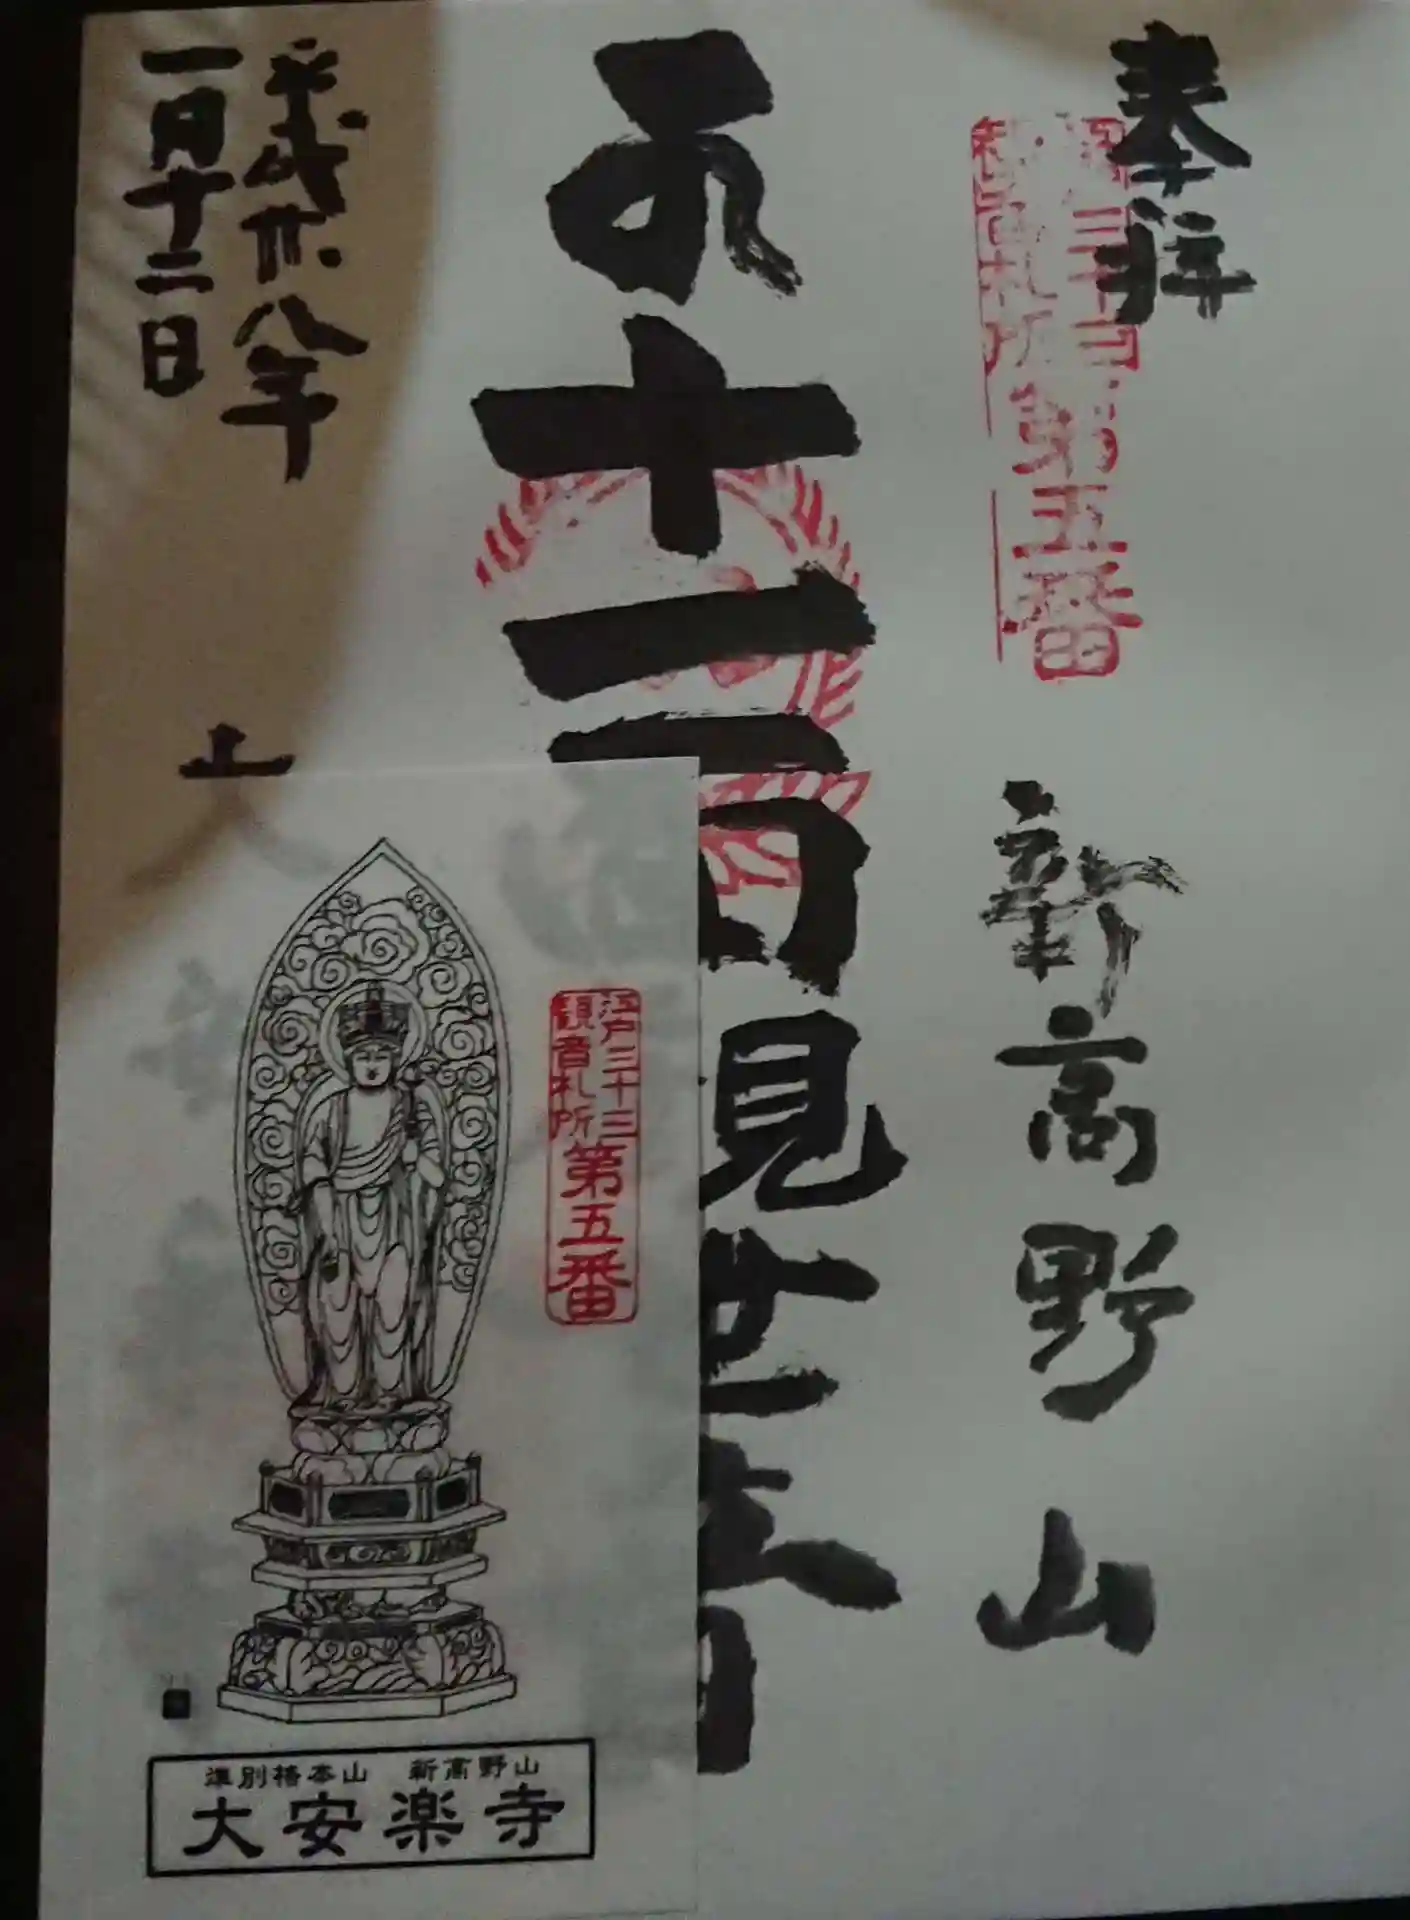 奉拝
江戸三十三
観音札所
第五番
新高野山
十一面観世音
平成廿八年
一月十二日
江戸三十三
観音札所
第五番
準別格本山 新高野山
大安楽寺